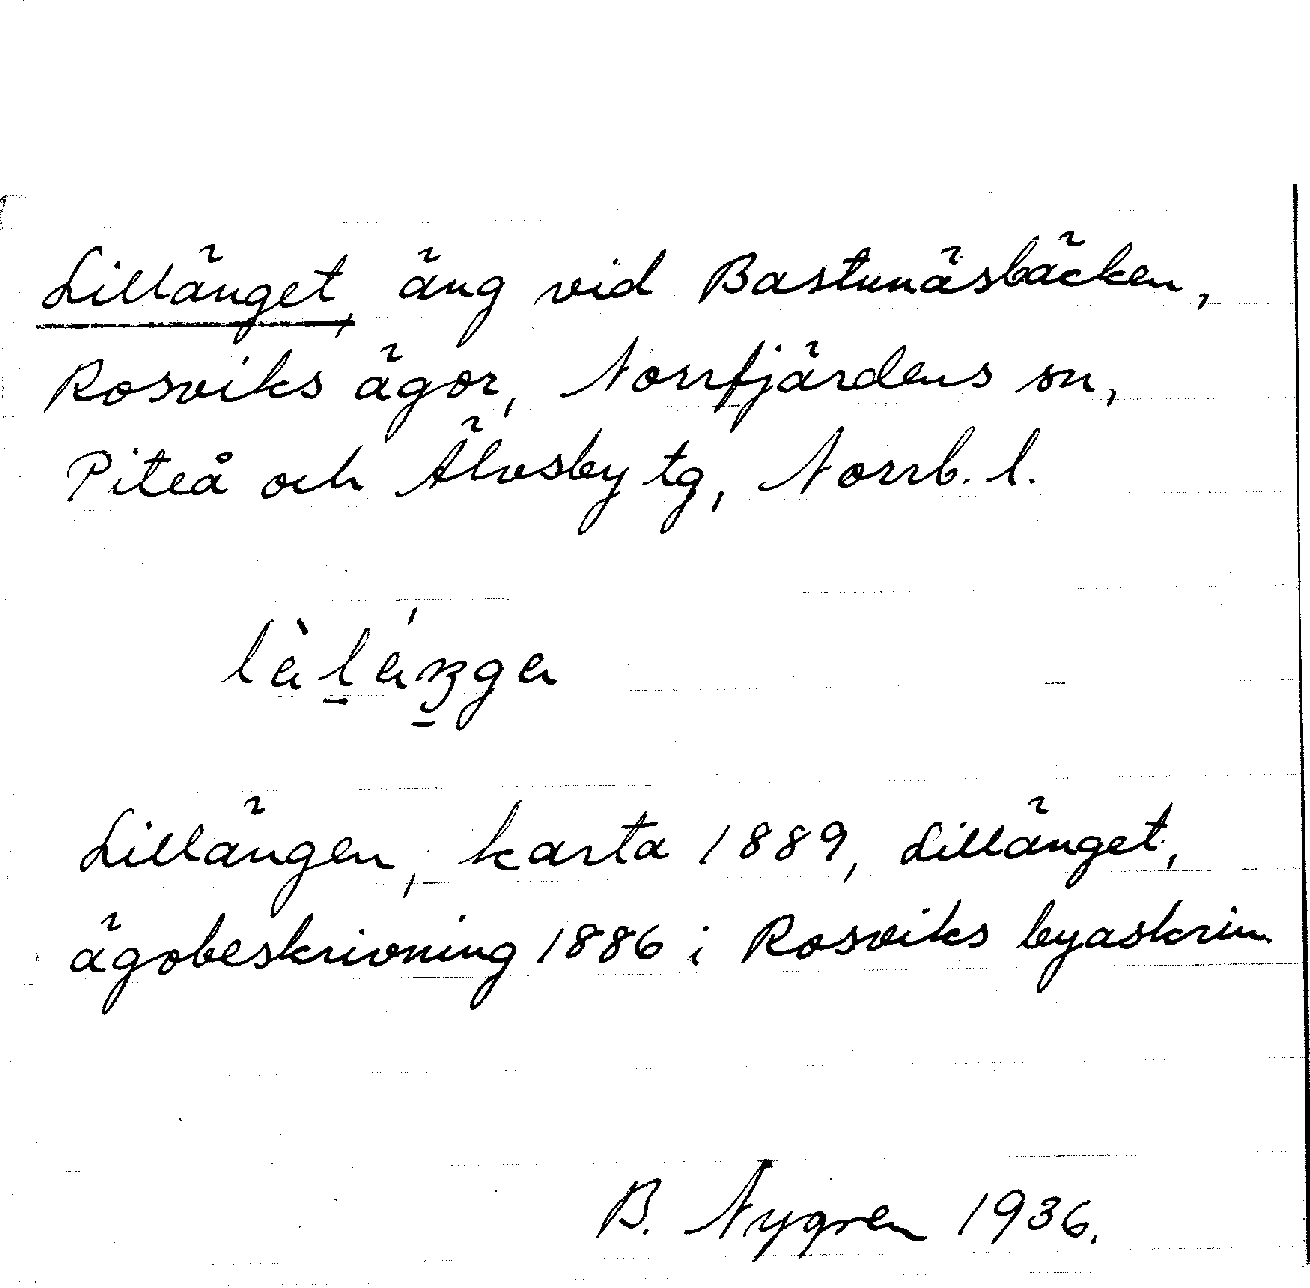 Lillänget, äng vid Bastunäsbäcken,
Rosviks ägor, Norrfjärdens sn,
Piteå och Älvsby tg, Norrb. l.
Lillängen, karta 1889, Lillänget,
ägobeskrivning 1886 i Rosviks byaskrin
B. Nygren 1936.